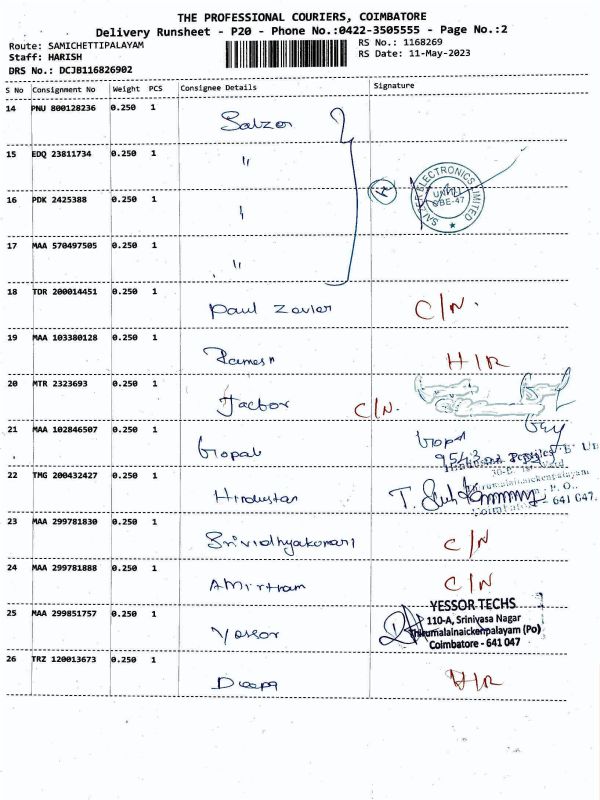 THE PROFESSIONAL COURIERS, COIMBATORE
Delivery Runsheet - P20 - Phone No.:0422-3505555 - Page No.:2
Route: SAMICHETTIPALAYAM
RS No.: 1168269
Staff: HARISH
RS Date: 11-May-2023
DRS No.: DCJB116826902
S No Consignment No Weight PCS Consignee Details Signature
14 PNU 800128236 0.250 1
Salzer
15 EDQ 23811734 0.250 1
"
16 PDK 2425388 0.250 1
SALZER ELECTRONICS LIMITED
CBE-47
17 MAA 570497505 0.250 1
"
18 TDR 200014451 0.250 1
Paul Zavier C/N.
19 MAA 103380128 0.250 1
Ramesh H/R
20 MTR 2323693 0.250 1
Jacbor C/N.
21 MAA 102846507 0.250 1
Gopal Gopal
22 TMG 200432427 0.250 1
Hindustan
641 047.
23 MAA 299781830 0.250 1
Srividhyakumari C/N
24 MAA 299781888 0.250 1
Amirtham C/N
25 MAA 299851757 0.250 1
Yessor
YESSOR TECHS
110-A, Srinivasa Nagar
Thirumalainaickenpalayam (Po)
Coimbatore - 641 047
26 TRZ 120013673 0.250 1
Deepa H/R